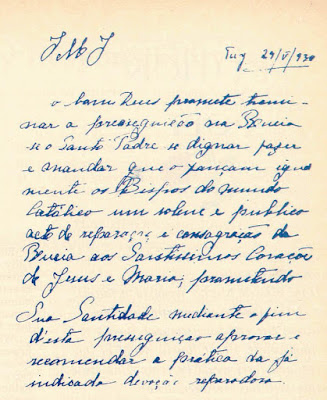 J M J
Tuy 29/V/930
o bom Deus promete termi-
nar a presseguição na Russia
se o Santo Padre se dignar fazer
e mandar que o façam igual
mente os Bispos do mundo
Católico um solene e publico
acto de reparação e consagração da
Russia aos Santissimos Corações
de Jesus e Maria, prometendo
Sua Santidade mediante o fim
d'esta presseguiçao aprovar e
recomendar a prática da já
indicada devoção reparadora.